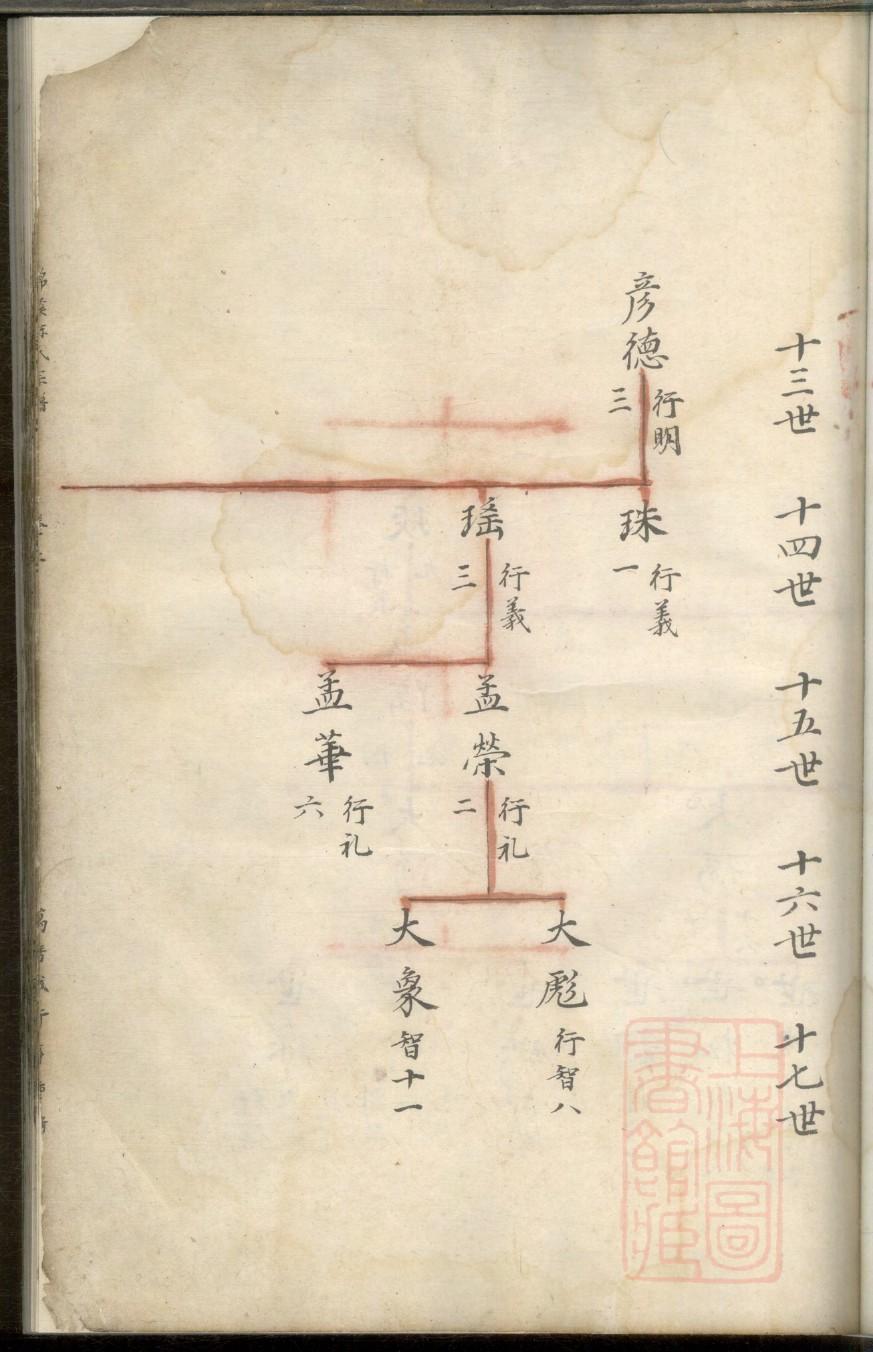 十三世 十四世 十五世 十六世 十七世
彦德 行明三
珠 行義一
瑶 行義三
孟榮 行礼二
孟華 行礼六
大彪 行智八
大象 智十一
上海圖書館藏